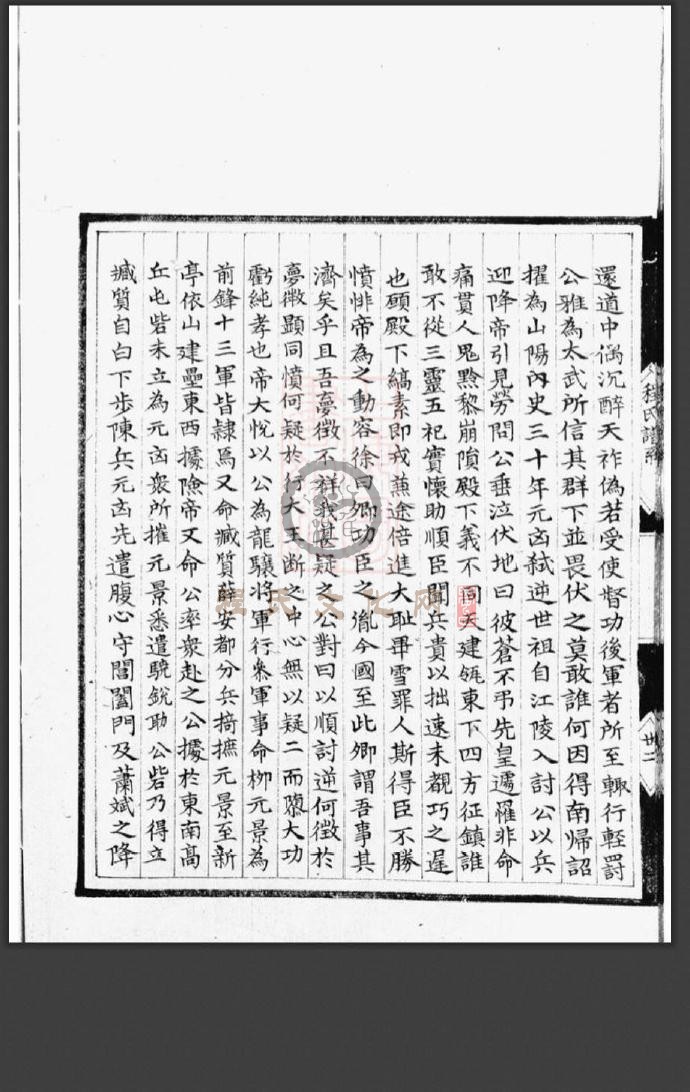 程氏譜系
廿二
還道中偶沉醉天祚偽若受使督功後軍者所至輙行輕罰
公雅為太武所信其群下並畏伏之莫敢誰何因得南歸詔
擢為山陽內史三十年元凶弒逆世祖自江陵入討公以兵
迎降帝引見勞問公垂泣伏地曰彼蒼不弔先皇遽罹非命
痛貫人鬼黔黎崩隕殿下義不同天建瓴東下四方征鎮誰
敢不從三靈五祀實懷助順臣聞兵貴以拙速未覩巧之遲
也願殿下縞素即戎蒹途倍進大耻畢雪罪人斯得臣不勝
憤悱帝為之動容徐曰卿功臣之胤今國至此卿謂吾事其
濟矣乎且吾夢徴不祥我甚疑之公對曰以順討逆何徴於
夢徴顯同憤何疑於行大王断之中心無以疑二而隳大功
虧純孝也帝大悅以公為龍驤將軍行叅軍事命柳元景為
前鋒十三軍皆隸焉又命臧質薛安都分兵掎摭元景至新
亭依山建壘東西據險帝又命公率衆赴之公據於東南高
丘屯砦未立為元凶衆所摧元景悉遣驍銳助公砦乃得立
臧質自白下步陳兵元凶先遣腹心守閶闔門及蕭斌之降
程氏文化网